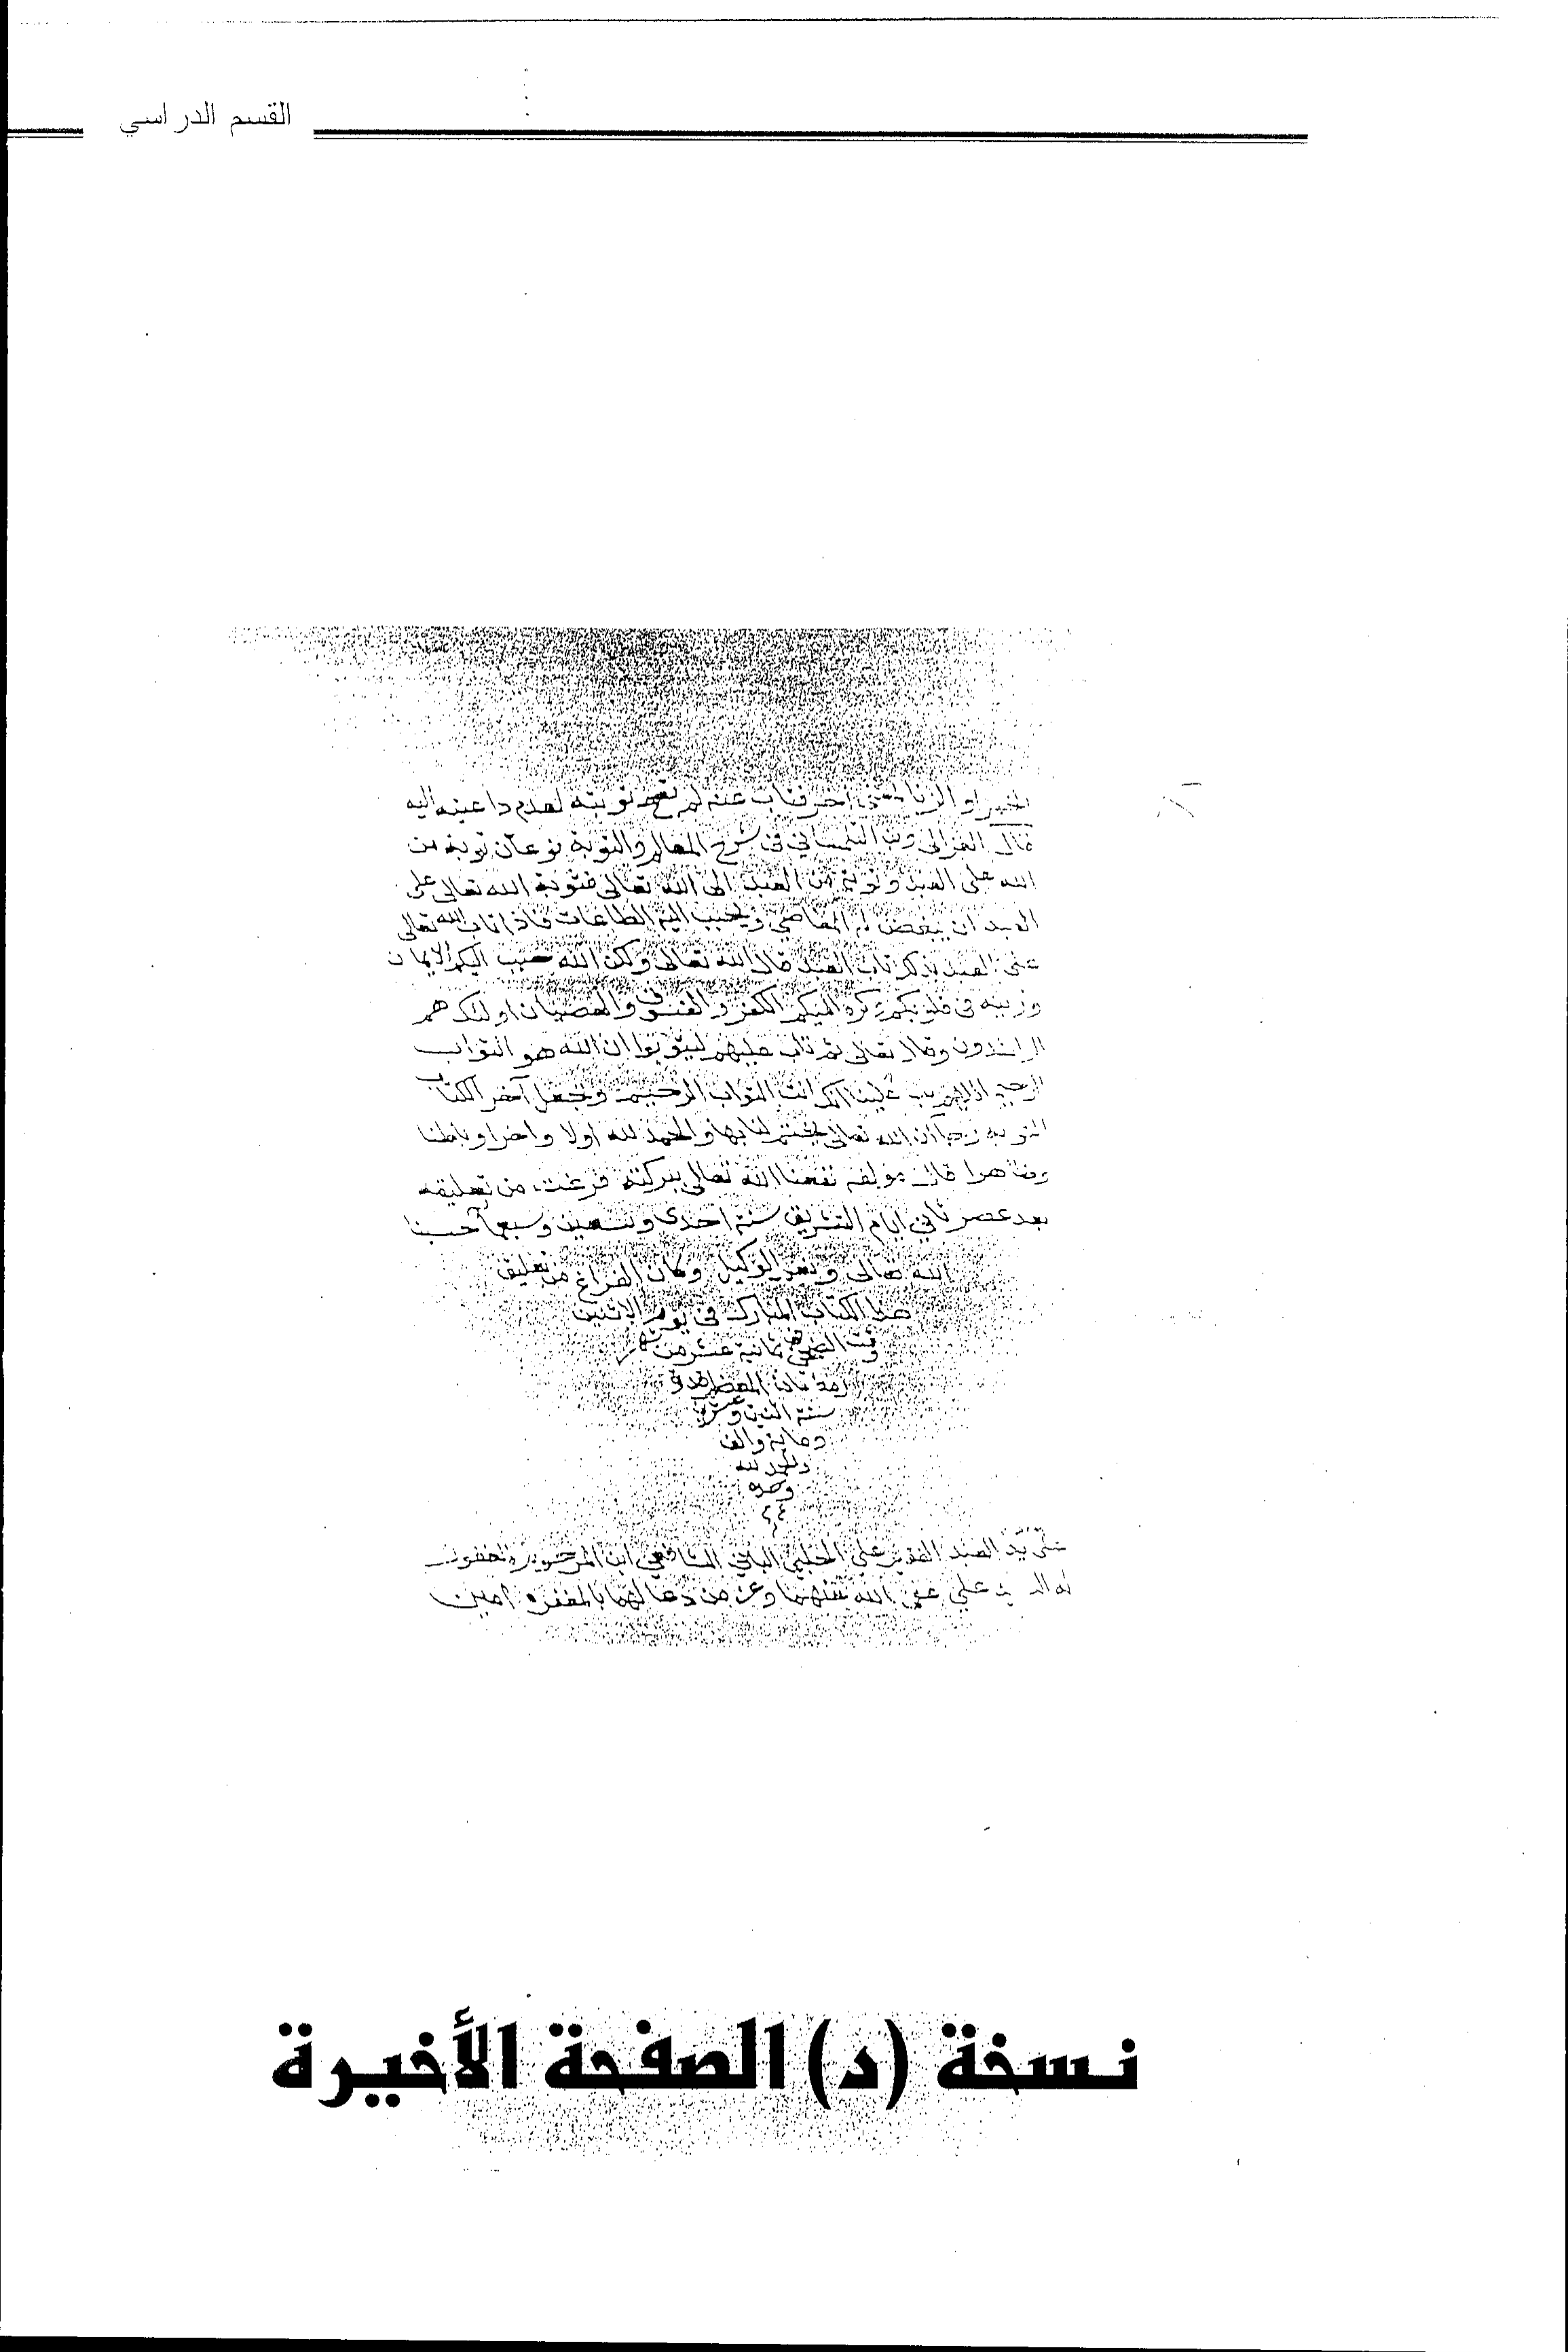 القسم الدراسي
او الزنا عنه لم تصح توبته لعدم داعيته اليه
قال الغزالي التلمساني في شرح المعالم والتوبة نوعان توبة من
الله على العبد وتوبة من العبد الى الله تعالى فتوبة الله تعالى على
العبد ان يبغض له المعاصي ويحبب اليه الطاعات فاذا تاب الله تعالى
على العبد بذلك تاب العبد قال الله تعالى ولكن الله حبب اليكم الايمان
وزينه في قلوبكم وكره اليكم الكفر والفسوق والعصيان اولئك هم
الراشدون وقال تعالى ثم تاب عليهم ليتوبوا ان الله هو التواب
الرحيم اللهم تب علينا انك انت التواب الرحيم ونجعل آخر الكتاب
التوبة رجاء ان الله تعالى يختم لنا بها والحمد لله اولا واخرا وباطنا
وظاهرا قال مؤلفه نفعنا الله تعالى ببركته فرغت من تعليقه
بعد عصر ثاني ايام التشريق سنة احدى وتسعين وسبعمائة حسبنا
الله تعالى ونعم الوكيل وكان الفراغ من تعليق
هذا الكتاب المبارك في يوم الاثنين
وقت الضحى ثمانية عشر من شهر
رمضان المعظم قدره
سنة اثنين وعشرين
وماية والف
والحمد لله
وحده
على يد العبد الفقير علي الشافعي ابن المرحوم
علي عفى الله عنهما وعن من دعا لهما بالمغفرة امين
نسخة (د) الصفحة الأخيرة